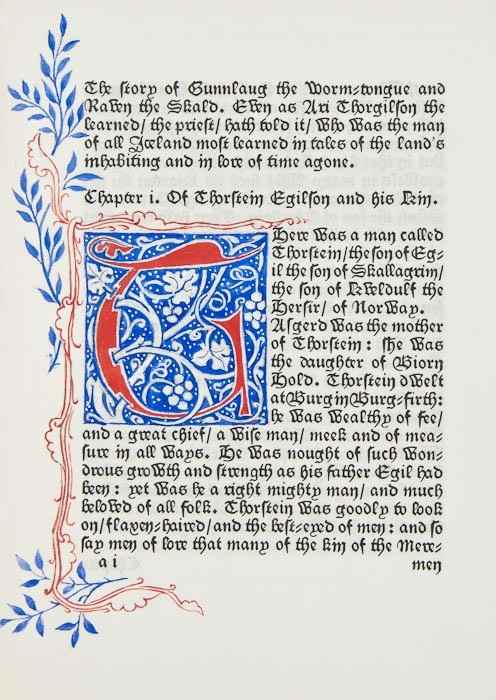 The story of Gunnlaug the Worm-tongue and
Raven the Skald. Even as Ari Thorgilson the
learned/ the priest/ hath told it/ who was the man
of all Iceland most learned in tales of the land's
inhabiting and in lore of time agone.
Chapter i. Of Thorstein Egilson and his kin.
There was a man called
Thorstein/ the son of Eg-
il the son of Skallagrim/
the son of Kveldulf the
Hersir/ of Norway.
Asgerd was the mother
of Thorstein: she was
the daughter of Biorn
Hold. Thorstein dwelt
at Burg in Burg-firth:
he was wealthy of fee/
and a great chief/ a wise man/ meek and of mea-
sure in all ways. He was nought of such won-
drous growth and strength as his father Egil had
been: yet was he a right mighty man/ and much
beloved of all folk. Thorstein was goodly to look
on/ flaxen-haired/ and the best-eyed of men: and so
say men of lore that many of the kin of the Mere-
a i
men